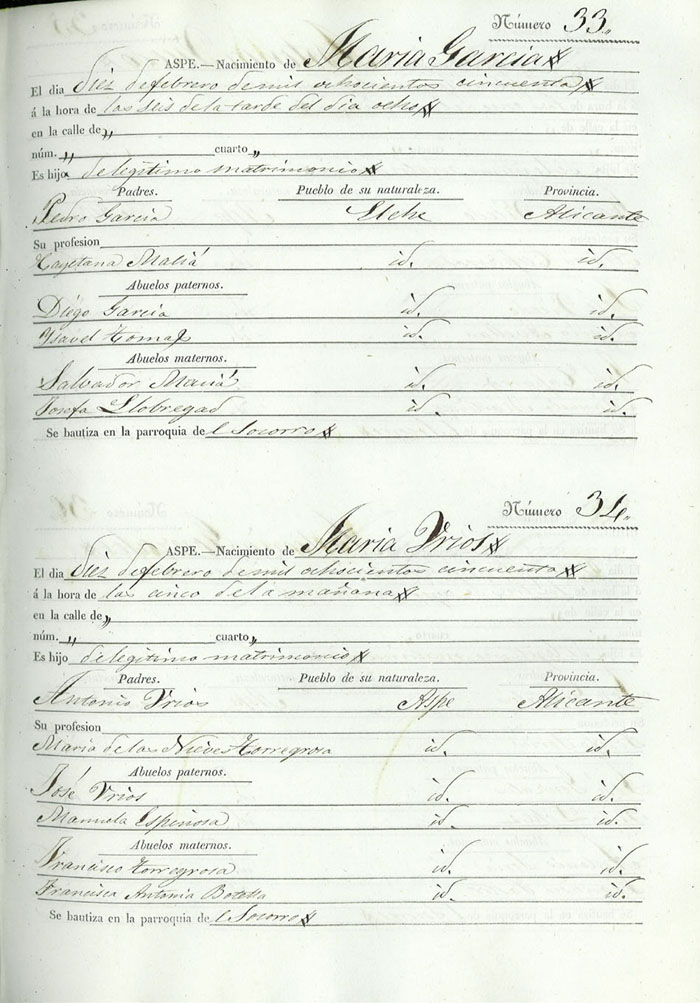 Número 33.
ASPE.—Nacimiento de Maria Garcia
El dia diez de febrero de mil ochocientos cincuenta
á la hora de las seis de la tarde del dia ocho
en la calle de „
núm. „ cuarto „
Es hija de legitimo matrimonio
Padres. Pueblo de su naturaleza. Provincia.
Pedro Garcia Elche Alicante
Su profesion
Cayetana Maciá id. id.
Abuelos paternos.
Diego Garcia id. id.
Ysavel Tomaz id. id.
Abuelos maternos.
Salvador Maciá id. id.
Josefa Llobregad id. id.
Se bautiza en la parroquia de l Socorro
Número 34.
ASPE.—Nacimiento de Maria Vrios
El dia diez de febrero de mil ochocientos cincuenta
á la hora de las cinco de la mañana
en la calle de „
núm. „ cuarto „
Es hijo de legitimo matrimonio
Padres. Pueblo de su naturaleza. Provincia.
Antonio Vrios Aspe Alicante
Su profesion
Maria de las Nieves Torregrosa id. id.
Abuelos paternos.
José Vrios id. id.
Manuela Espinosa id. id.
Abuelos maternos.
Francisco Torregrosa id. id.
Francisca Antonia Botella id. id.
Se bautiza en la parroquia de l Socorro